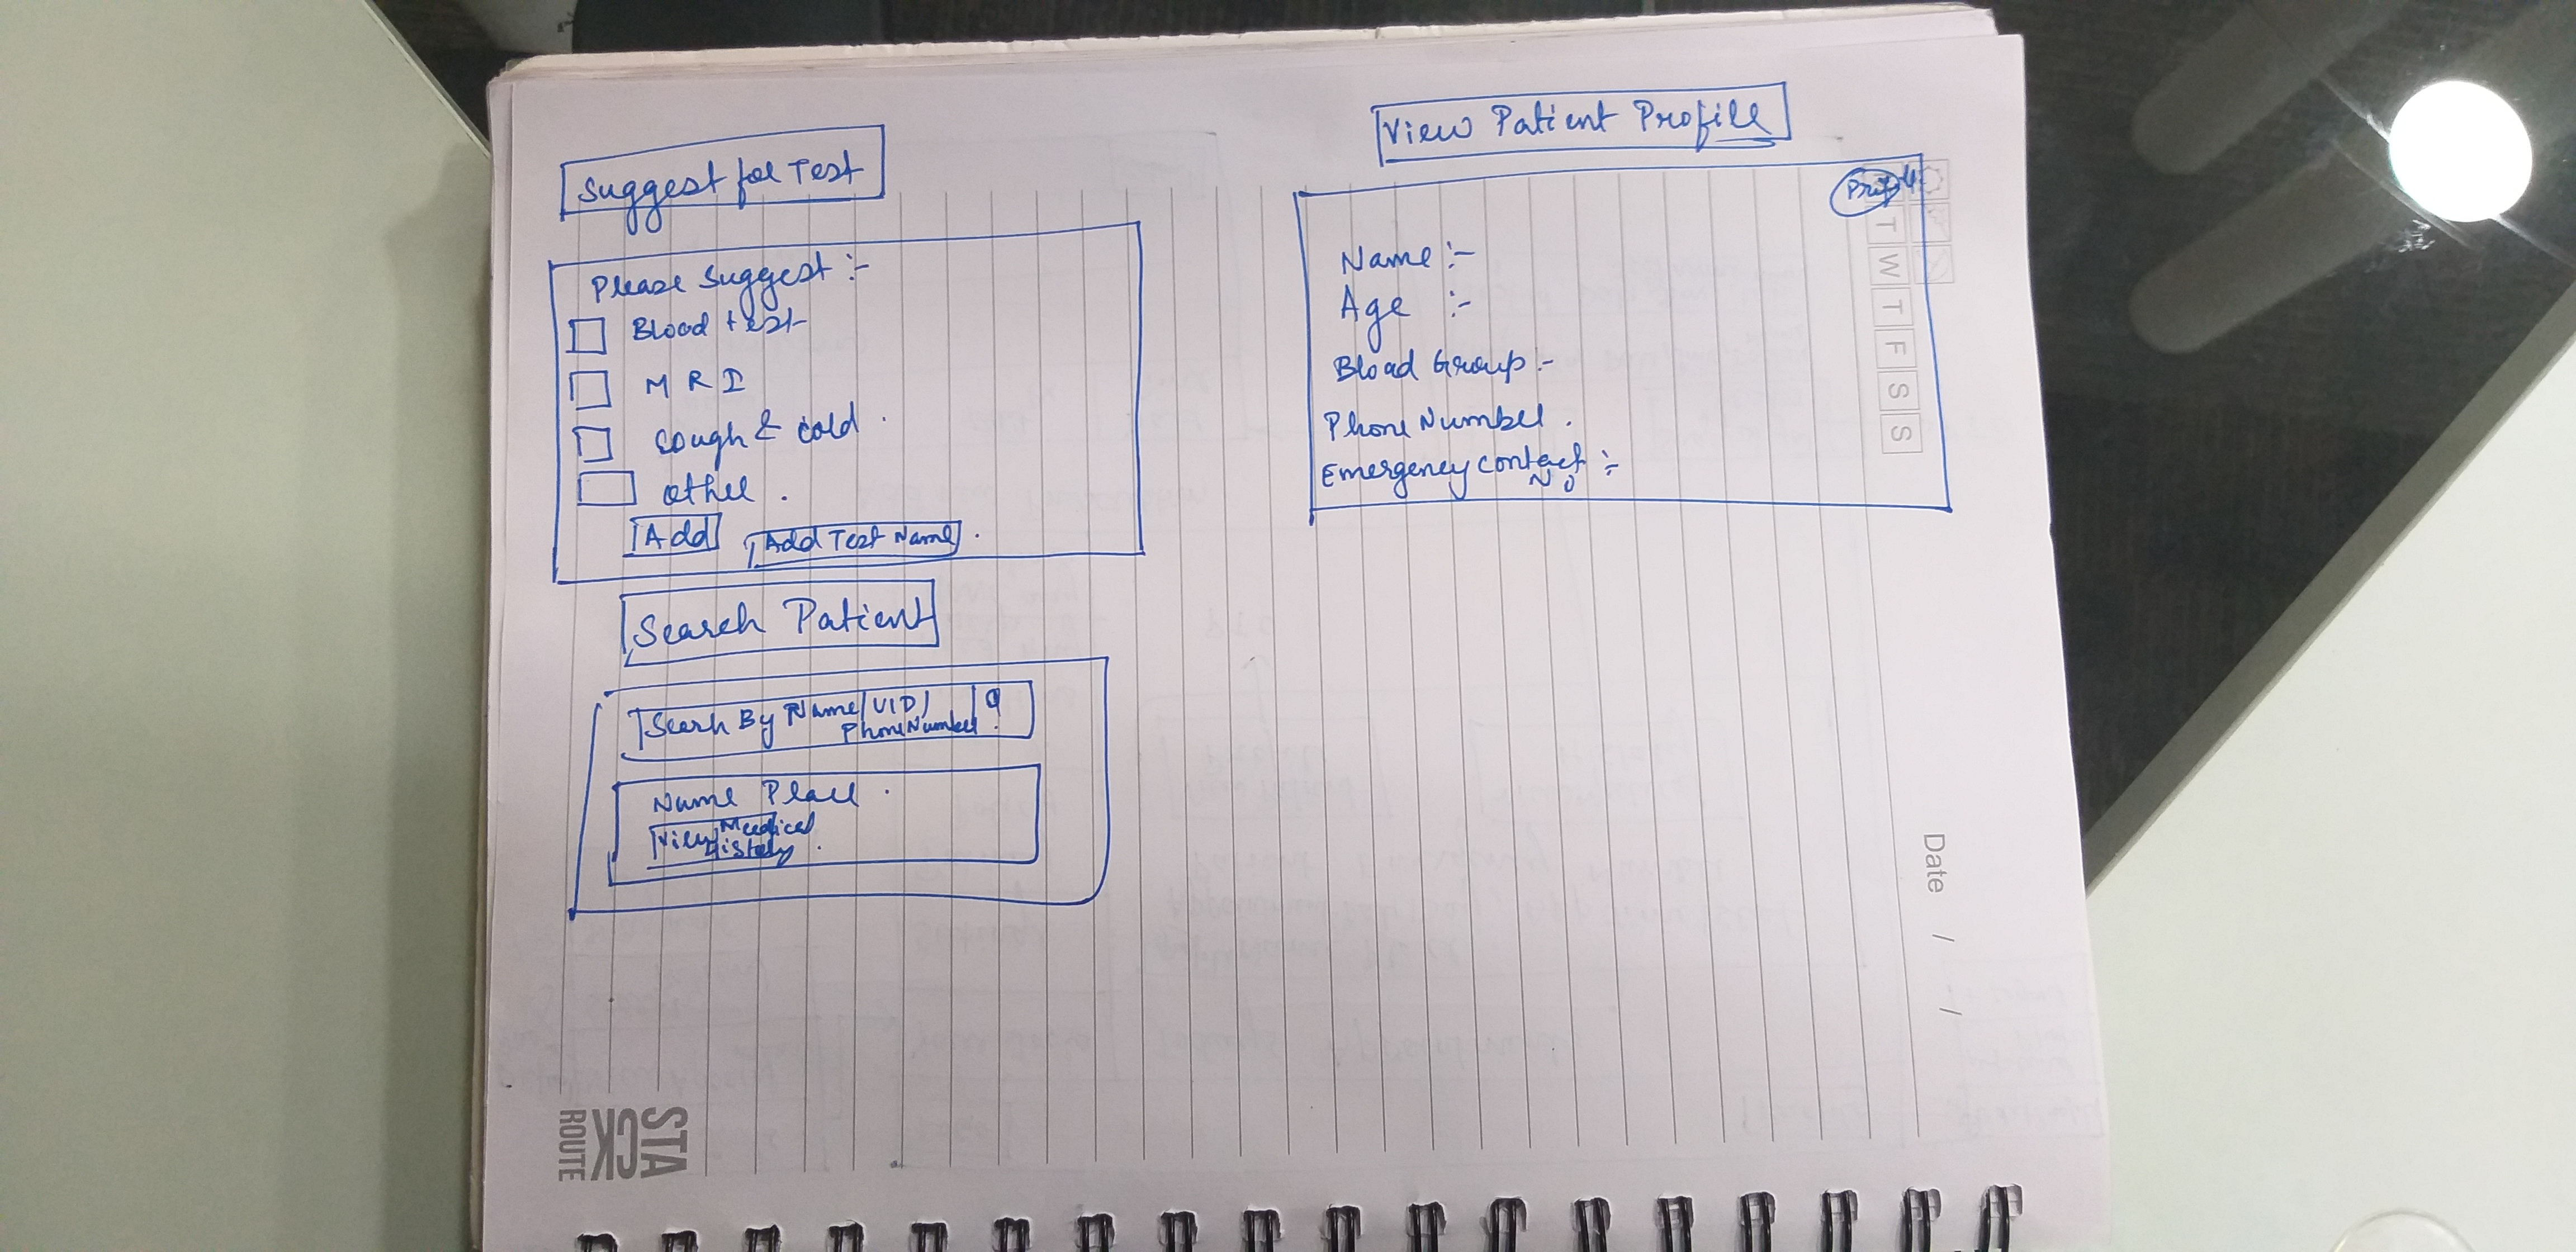 Suggest for Test
Please Suggest :-
Blood test
M R I
Cough & cold .
other .
Add Add Test Name .
Search Patient
Search By Name/UID/
Phone Number .
Name Place .
View Medical
History .
View Patient Profile
Name :-
Age :-
Blood Group :-
Phone Number .
Emergency Contact :-
No
T
W
T
F
S
S
Date / /
STA
CK
ROUTE